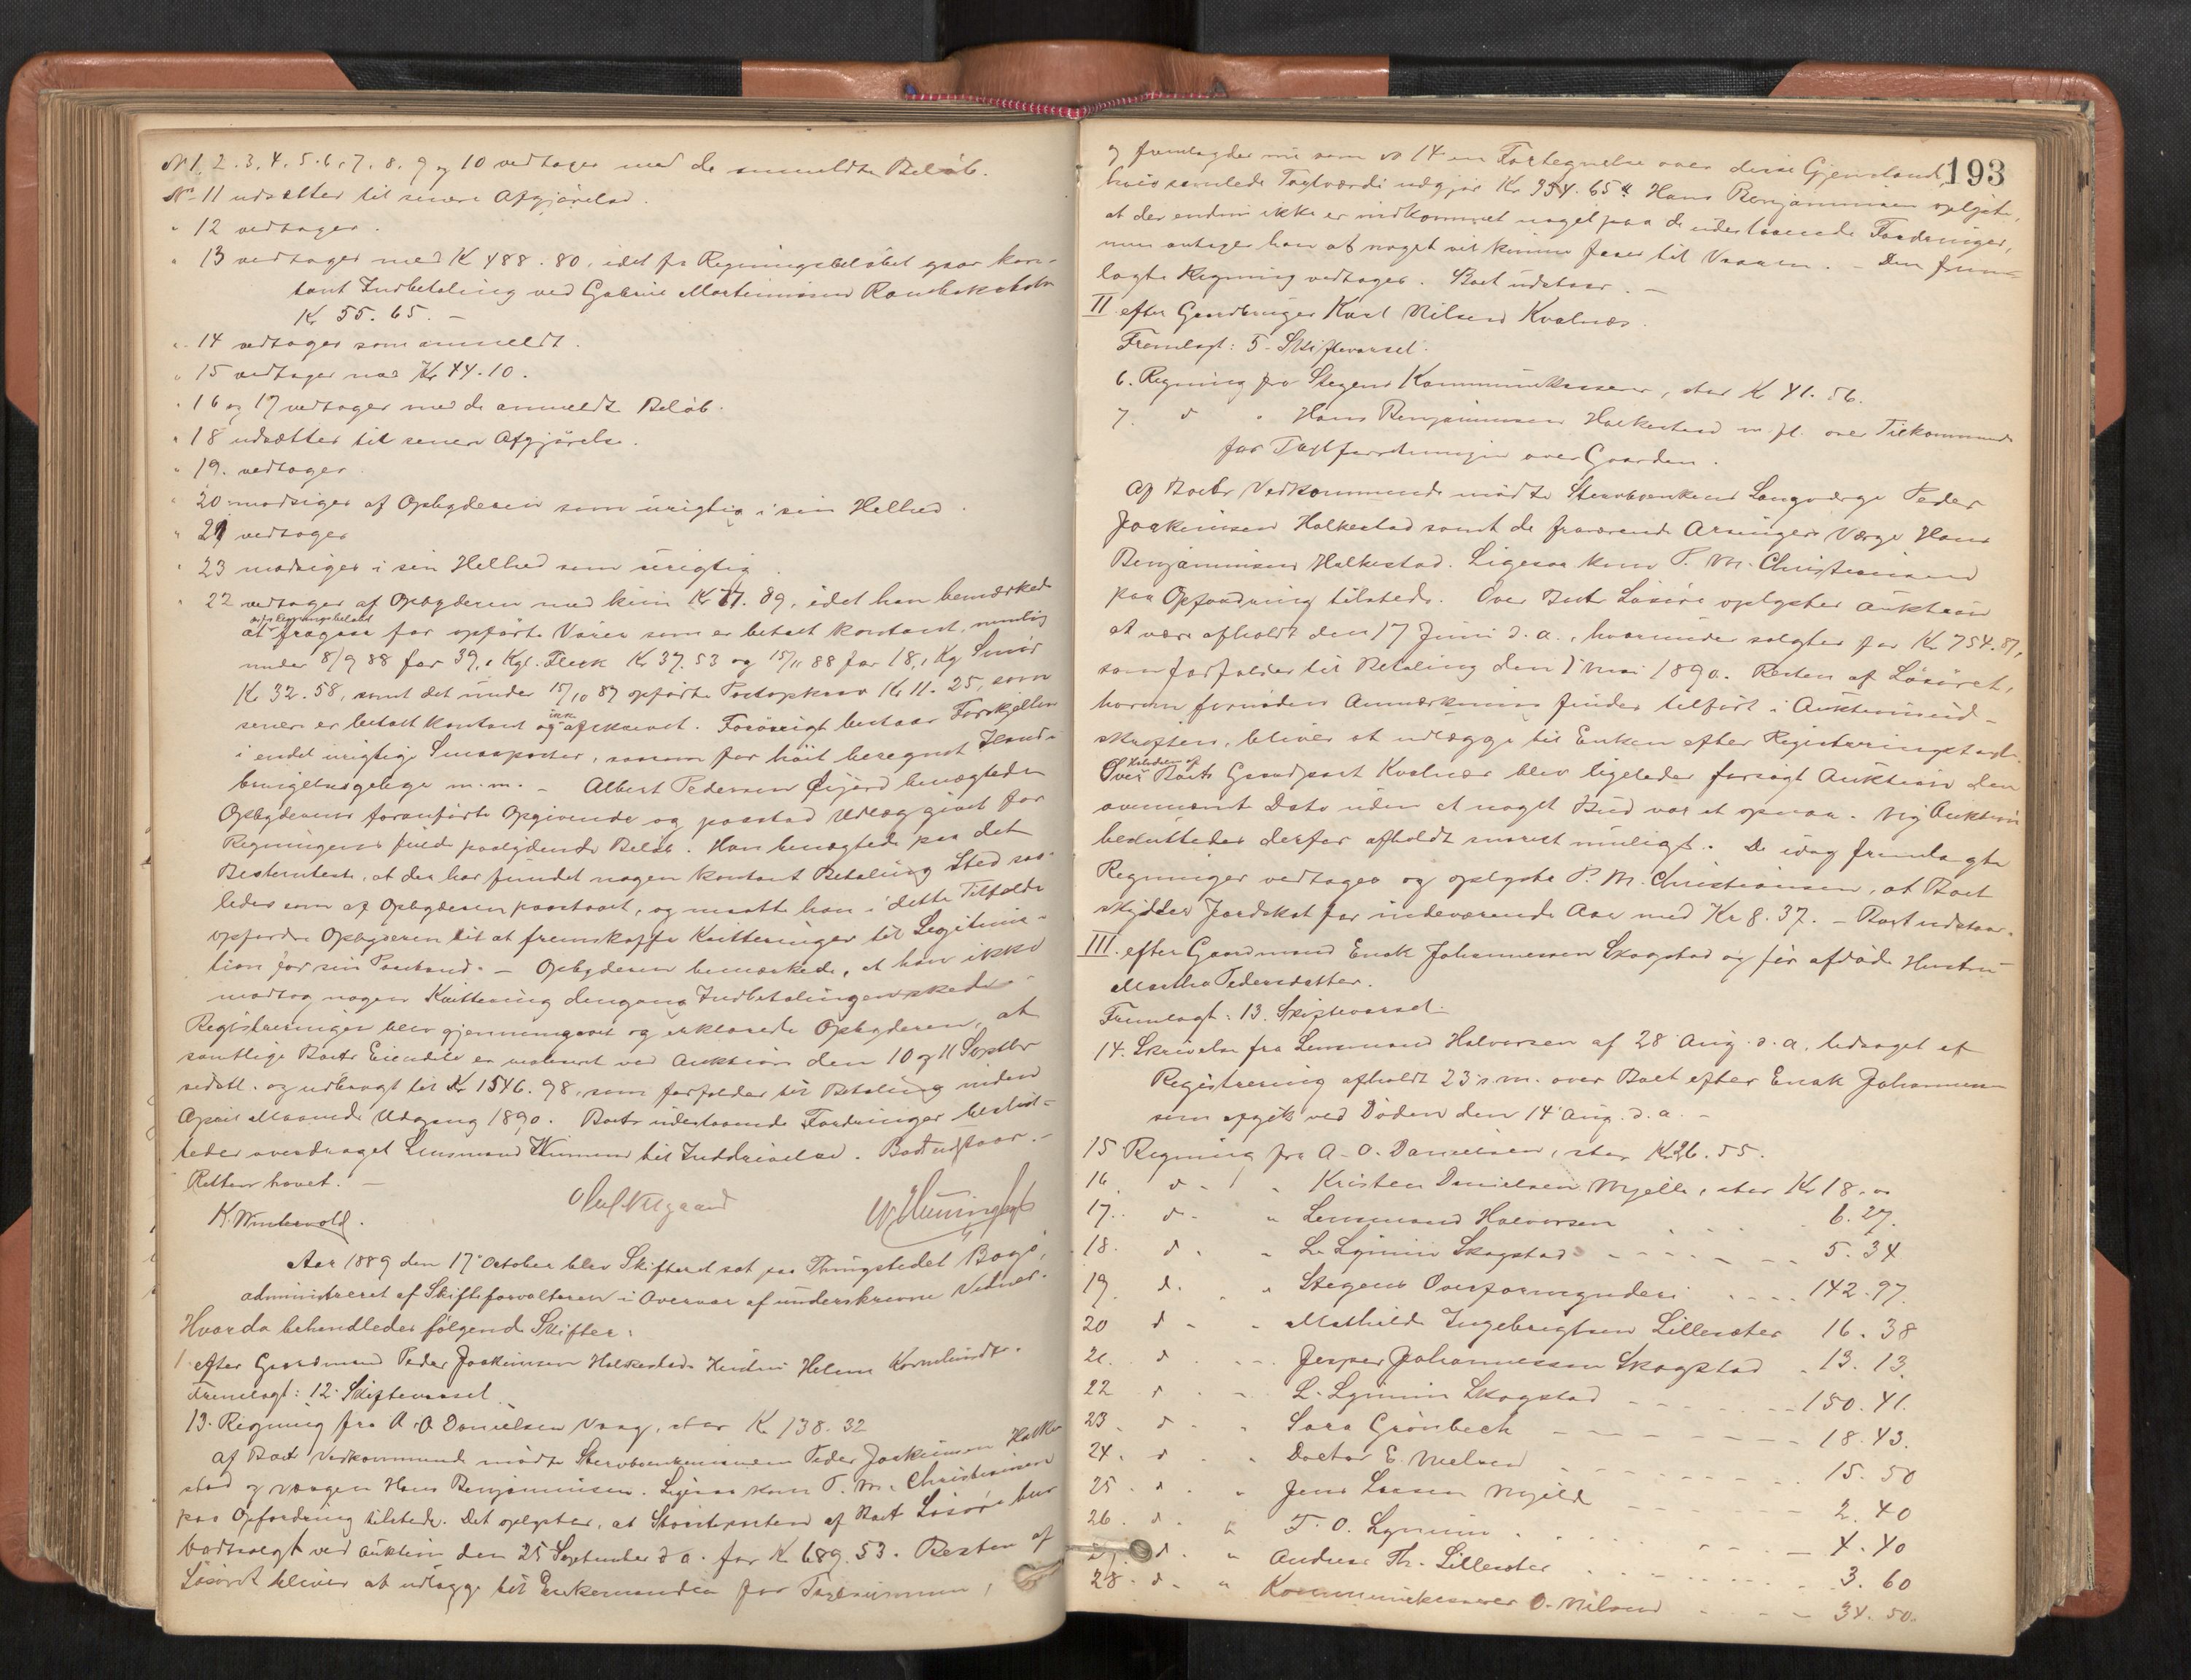 No 1. 2. 3. 4. 5. 6. 7. 8. 9 og 10 vedtages med de anmeldte Beløb.
No 11 udsættes til senere Afgjørelse.
" 12 vedtages.
" 13 vedtages med Kr 488.80, idet fra Regningsbeløbet gaar kon-
tant Indbetaling ved Gabriel Martinussen
Kr 55.65. –
" 14 vedtages som anmeldt.
" 15 vedtages med Kr 44.10.
" 16 og 17 vedtages med de anmeldte Beløb.
" 18 udsættes til senere Afgjørelse.
" 19. vedtages
" 20 modsiges af Opbyderen som urigtig i sin Helhed.
" 21 vedtages
" 23 modsiges i sin Helhed som urigtig.
" 22 vedtages af Opbyderen med kun Kr 77.89, idet han bemærkede
at Regningsbeløbet fragaar for opførte Varer som er betalt kontant, nemlig
under 8/9 88 for 39,1 Kgr. Flesk Kr 37.53 og 15/11 88 for 18,1 Kg Smør
Kr 32.58, samt det under 15/10 87 opførte Postopkrav Kr 11.25, som
senere er betalt kontant og ikke afskrevet. Forøvrigt bestaar Forskjellen
i endel urigtige Smaaposter, saasom for høit beregnet
m.m. – Albert Pedersen benægtede
Opbyderens foranførte Opgivende og paastod Udlæg givet for
Regningens fulde paalydende Beløb. Han benægtede paa det
Bestemteste, at der har fundet nogen kontant Betaling Sted saa-
ledes som af Opbyderen paastaaet, og maatte han i dette Tilfælde
opfordre Opbyderen til at fremskaffe Kvitteringer til Legitima-
tion for sin Paastand. – Opbyderen bemærkede, at han ikke
modtog nogen Kvittering dengang Indbetalingen skede. –
Registreringen blev gjennemgaaet og erklærede Opbyderen, at
samtlige Boets Eiendele er realiseret ved Auktion den 10 og 11 Septbr
sidstl. og udbragt til Kr 1546.98, som forfalder til Betaling inden
April Maaneds Udgang 1890. Boets udestaaende Fordringer beslut-
tedes overdraget Lensmand til Inddrivelse. Boet udstaar. –
Retten hævet. –
Aar 1889 den 17 October blev Skifteret sat paa Thingstedet Bogø,
administreret af Skifteforvalteren i Overvær af underskrevne Vidner.
Hvorda behandledes følgende Skifter:
I efter Gaardmand Peder Joakimsen Halkestads Hustru Helene
Fremlagt: 12. Skiftevarsel
13. Regning fra A. O. Danielsen Vaag, stor Kr 138.32
Af Boets Vedkommende mødte Stervboenkemanden Peder Joakimsen Halke-
stad og Værgen Hans Benjaminsen. Ligesaa kom P. M. Christiansen
paa Opfordring tilstede. Det oplystes, at Størsteparten af Boets Løsøre
bortsolgt ved Auktion den 25 September d. a. for Kr 689.53. Resten af
Løsøret bliver at udlægge til Enkemanden for Taxtsummen,
193
og fremlagdes nu som No 14 en Fortegnelse over disse Gjenstande,
hvis samlede Taxtværdi udgjør Kr 354.65. Hans Benjaminsen oplyste,
at der endnu ikke er indkommet noget paa de udestaaende Fordringer,
men antager han at noget vil kunne faaes til Vaaren. – Den frem-
lagte Regning vedtages. Boet udstaar. –
II efter Gaardbruger Karl Nilsen Kvalnæs.
Fremlagt: 5. Skiftevarsel.
6. Regning fra Stegens Kommunekasserer, stor Kr 41.56.
7. d " Hans Benjaminsen Halkestad m. fl. over Tilkommende
for Taxtforretningen over Gaarden.
Af Boets Vedkommende mødte Stervboenkens Laugværge Peder
Joakimsen Halkestad samt de fraværende Arvingers Værge Hans
Benjaminsen Halkestad. Ligesaa kom P. M. Christiansen
paa Opfordring tilstede. Over Boets Løsøre oplystes Auktion
at være afholdt den 17 Juni d. a., hvorunder solgtes for Kr 754.87,
som forfalder til Betaling den 1 Mai 1890. Resten af Løsøret,
hvorom fornøden Anmærkning findes tilført i Auktionsud-
skriften, bliver at udlægge til Enken efter Registreringstaxt.
Over Halvdelen af Boets Gaardpart Kvalnæs blev ligeledes forsøgt Auktion den
ovennævnte Dato uden at noget Bud var at opnaa. Ny Auktion
besluttedes derfor afholdt snarest muligt. De idag fremlagte
Regninger vedtages og oplyste P. M. Christiansen, at Boet
skylder Jordskat for indeværende Aar med Kr 8.37. – Boet udstaar.
III. efter Gaardmand Enok Johannessen Skogstad og før afdøde Hustru
Martha Pedersdatter.
Fremlagt: 13. Skiftevarsel.
14. Skrivelse fra Lensmand Halvorsen af 28 Aug. d. a. ledsaget af
Registrering afholdt 23 s. m. over Boet efter Enok Johannessen
som afgik ved Døden den 14 Aug. d. a. –
15 Regning fra A. O. Danielsen, stor Kr 26.55.
16 d. " Kristen Danielsen Myklebø, stor Kr 18.00
17. d. " Lensmand Halvorsen 6.27.
18. d. " L. Lynum Skogstad 5.34
19. d. " Stegens Overformynderi 142.97.
20 d " Mathilde Ingebrigtsen Lillesæter 16.38
21. d. " Jesper Johannessen Skogstad 13.13.
22 d " L. Lynum Skogstad 150.41.
23. d " Sara Grønbech 18.43.
24. d " Doctor E. Nielsen 15.50
25. d " Jens Larsen 2.40
26. d. " T. O. Lynum 4.40
27. d. " Andreas Th. Lillesæter 3.60
28. d. " Kommunekasserer O. Nilsen 34.50.